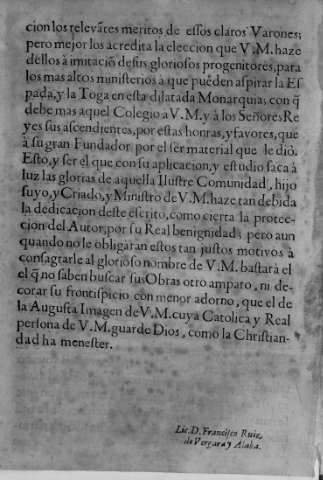 cion los relevãtes meritos de essos claros Varones;
pero mejor los acredita la eleccion que V.M. haze
dellos à imitaciõ desus gloriosos progenitores, para
los mas altos ministerios a que pueden aspirar la Es
pada, y la Toga en esta dilatada Monarquia; con q̃
debe mas aquel Colegio a V.M. y à los Señores Re
yes sus ascendientes, por estas honras, y favores, que
à su gran Fundador por el ser material que le diò.
Esto, y ser el que con su aplicacion, y estudio saca à
luz las glorias de aquella Ilustre Comunidad, hijo
suyo, y Criado, y Ministro de V.M. haze tan debida
la dedicacion deste escrito, como cierta la protec-
cion del Autor, por su Real benignidad; pero aun
quando no le obligaran estos tan justos motivos à
consagrarle al glorioso nombre de V.M. bastarà el
el q̃ no saben buscar sus Obras otro amparo, ni de-
corar su frontispicio con menor adorno, que el de
la Augusta Imagen de V.M. cuya Catolica y Real
persona de V.M. guarde Dios, como la Christian-
dad ha menester.
Lic. D. Francisco Ruiz
de Vergara y Alaba.